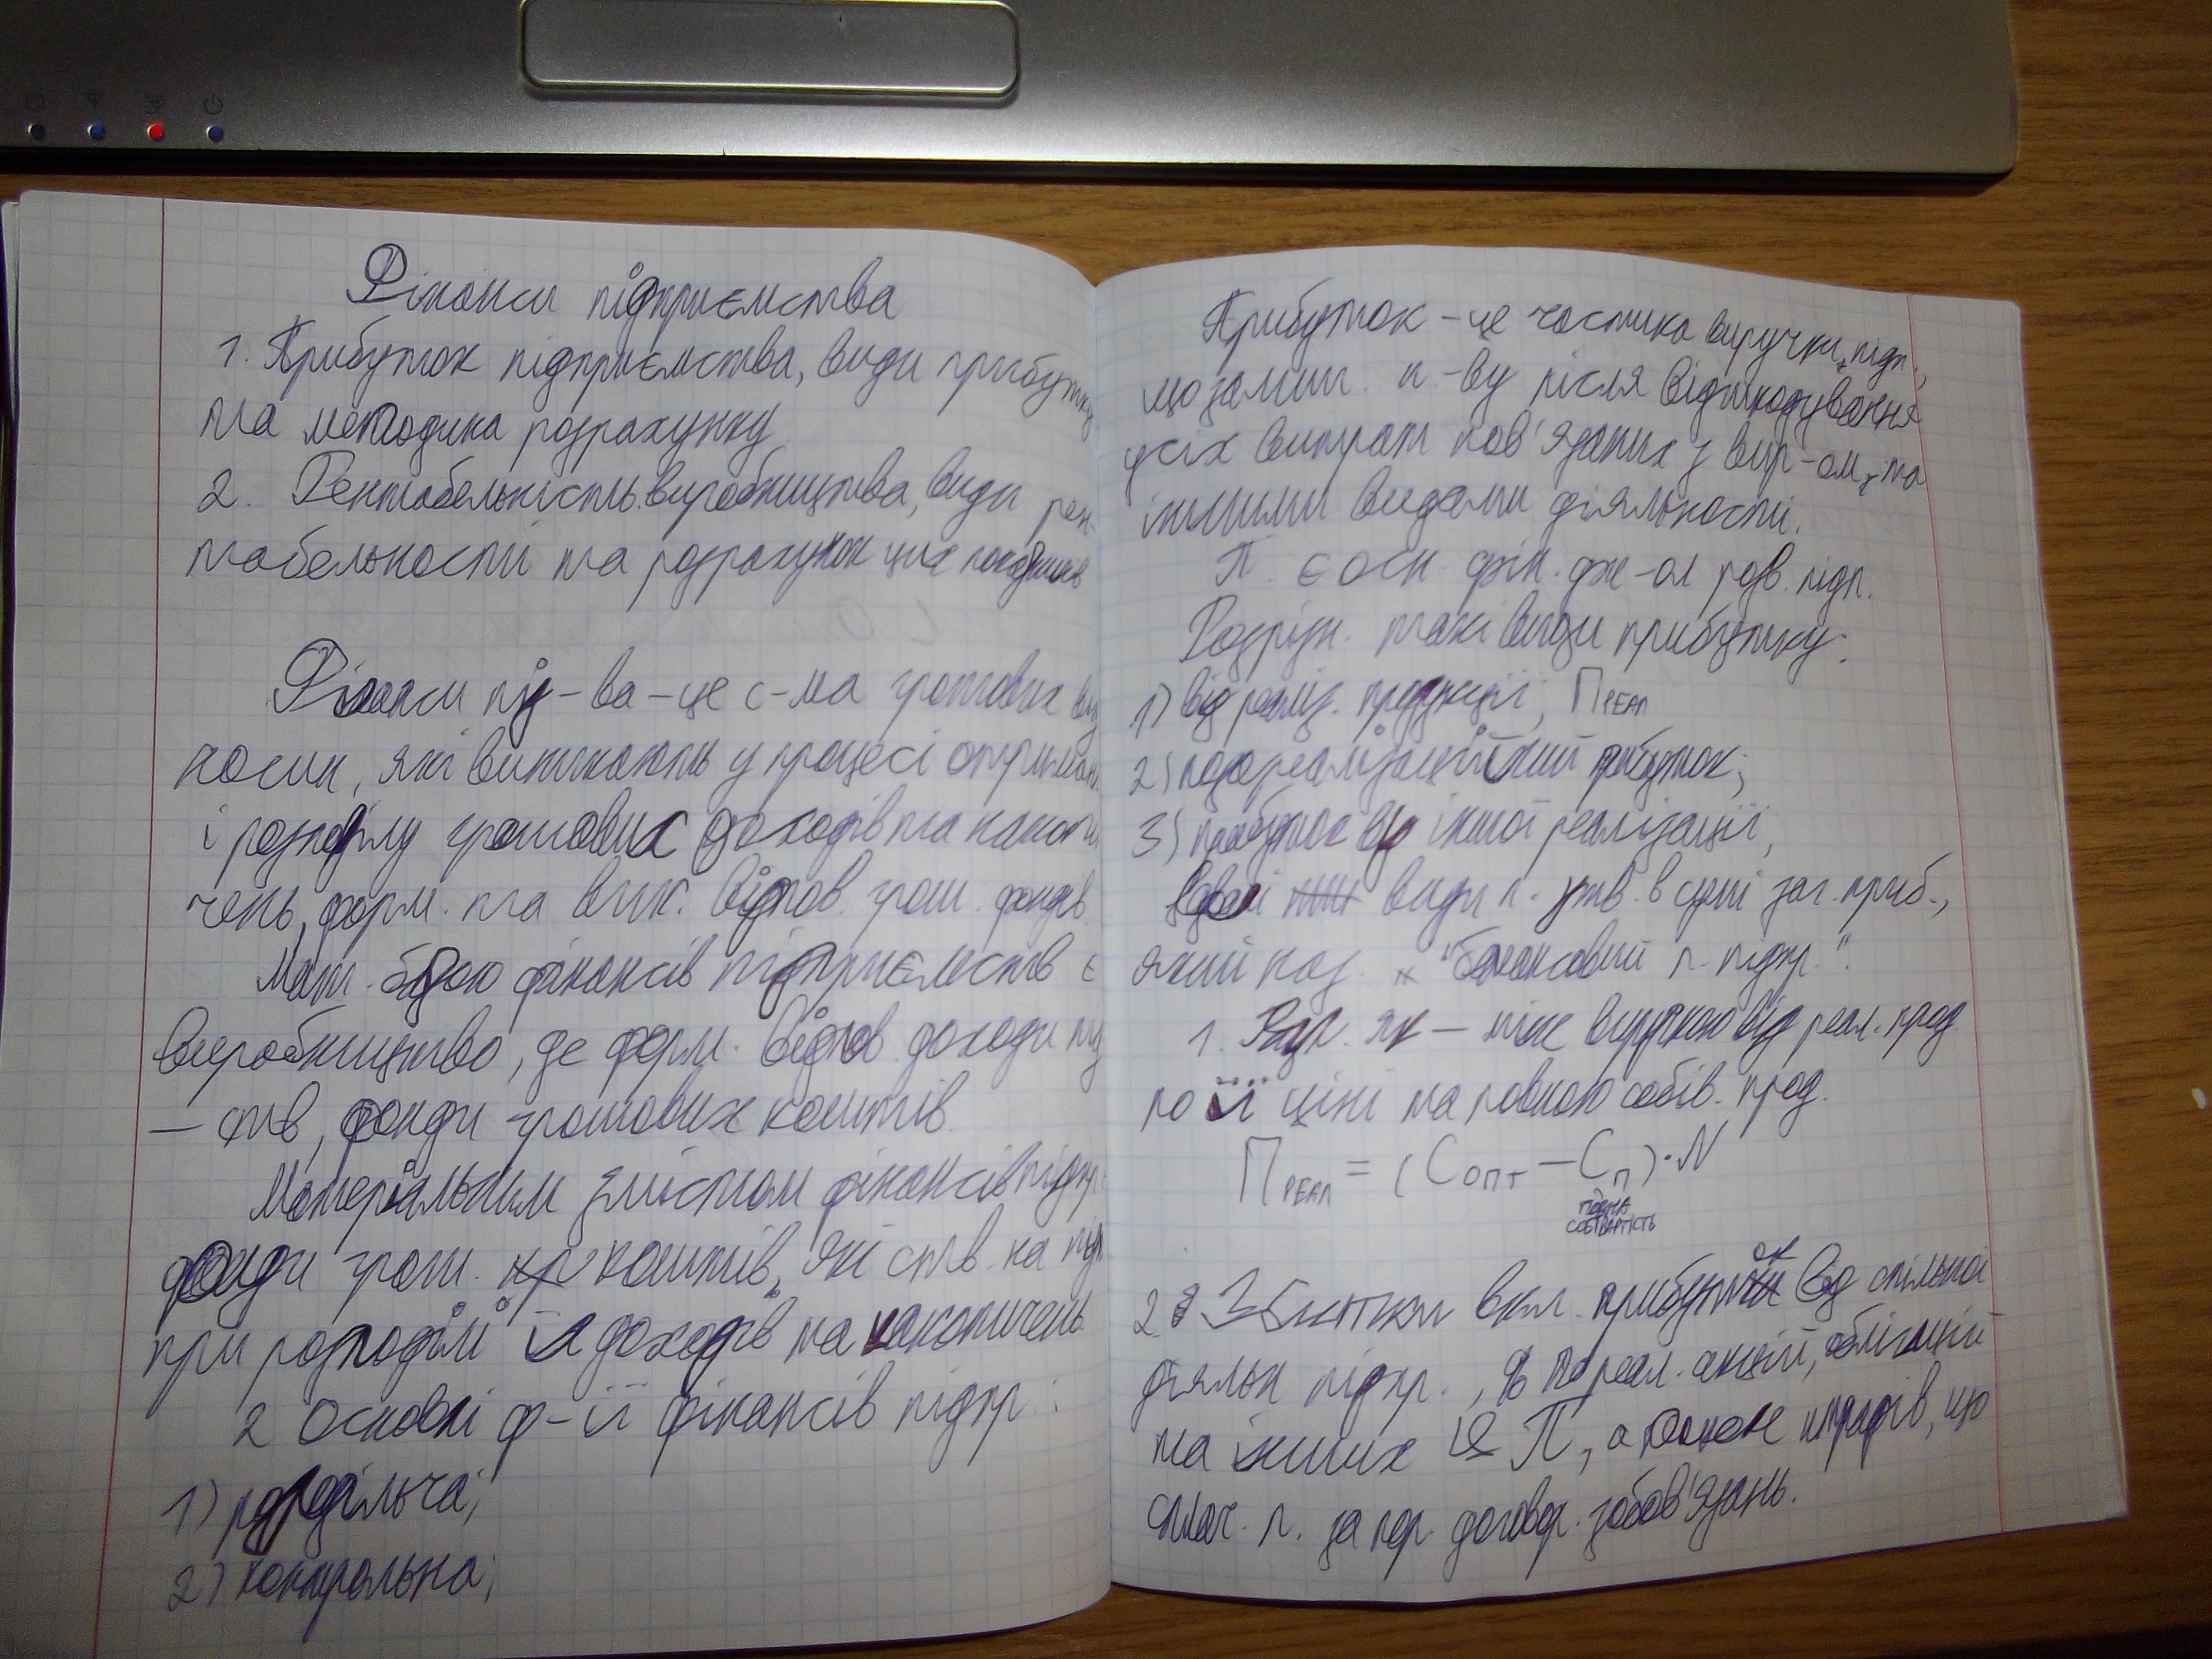 Фінанси підприємства
1. Прибуток підприємства, види прибутку
та методика розрахунку
2. Рентабельність виробництва, види рен-
табельності та розрахунок цих показників
Фінанси під-ва – це с-ма грошових від
носин, які виникають у процесі отриман
і розподілу грошових доходів та накопи
чень, форм. та вик. відпов. грош. фондів.
Мат. базою фінансів підприємств є
виробництво, де форм. відпов. доходи під
– ств, фонди грошових коштів.
Матеріальним змістом фінансів підпр.
фонди грош. коштів, які ств. на підп
при розподілі їх доходів та накопичень.
2 Основні ф-ії фінансів підпр.:
1) розподільча;
2) контрольна;
Прибуток – це частина виручки підп.,
що залиш. п.-ву після відшкодування
усіх витрат пов'язаних з вир-ом та
іншими видами діяльності.
П. є осн. фін. дж-ом розв. підп.
Розрізн. такі види прибутку:
1) від реаліз. продукції; Преал
2) позареалізаційний прибуток;
3) прибуток від іншої реалізації;
види п. утв. в сумі заг. приб.,
який наз. "балансовий п. підпр.".
1. Розр. як – між виручкою від реал. прод.
по її ціні та повною собів. прод.
Преал = (Сопт – Сп) · N
ПОВНА
СОБІВАРТІСТЬ
2. З вкл. прибуток від спільної
діяльн підпр., по реал. акцій, облігацій
та інших П, а також штрафів, що
сплач. п. за пор. договор. зобов'язань.